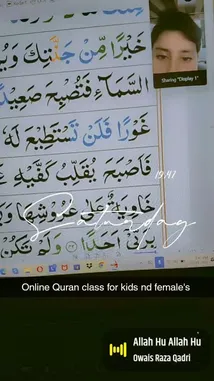 Sharing "Display 1"
خَيْرًا مِّنْ جَنَّتِكَ وَيُ
السَّمَآءِ فَتُصْبِحَ صَعِيْدًا
غَوْرًا فَلَنْ تَسْتَطِيْعَ لَهٗ
فَاَصْبَحَ يُقَلِّبُ كَفَّيْهِ عَ
19:41
خَاوِيَةٌ عَلٰى عُرُوْشِهَا وَ
Saturday
بِرَبِّيْۤ اَحَدًا وَلَمْ تَكُنْ
Online Quran class for kids nd female's
Allah Hu Allah Hu
Owais Raza Qadri